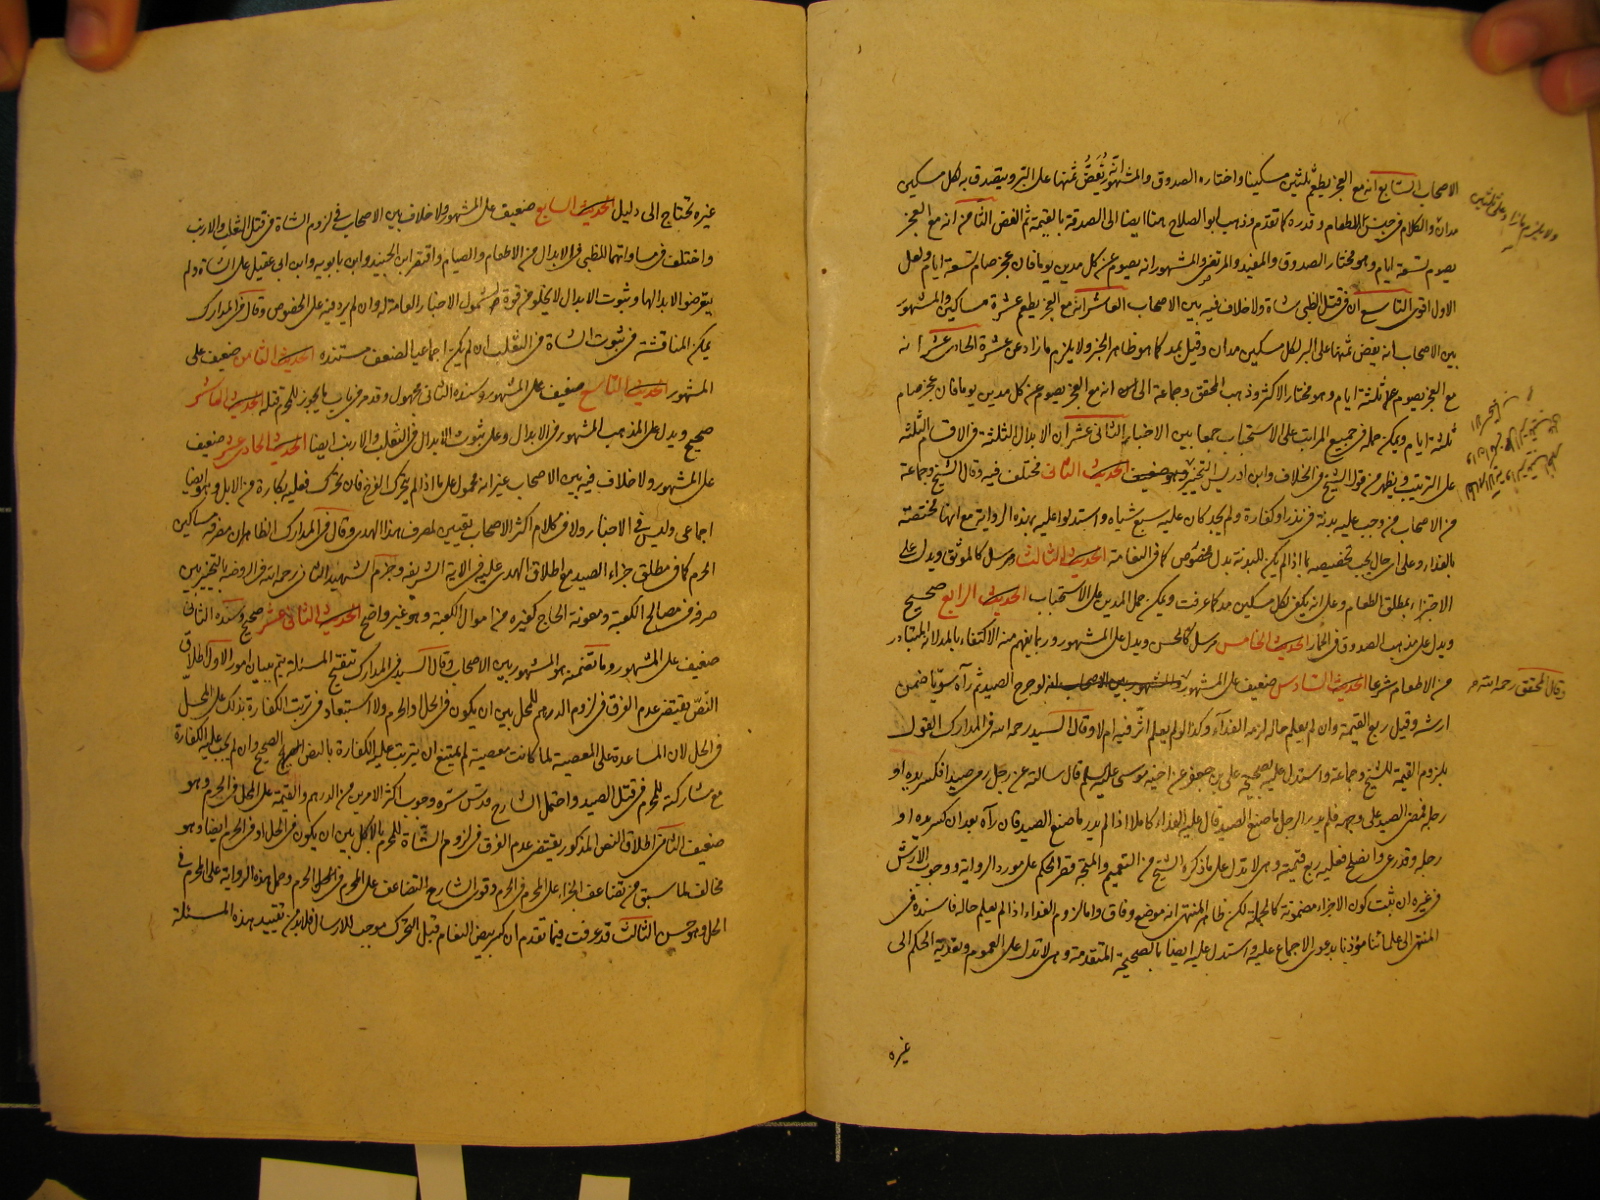 الاصحاب السابع انه مع العجز يطعم ثلثين مسكينا واختاره الصدوق والمشهور انه يُفَضُّ ثمنها على البر ويتصدق به لكل مسكين
مدان والكلام في جنس الطعام وقدره كما تقدم وذهب ابو الصلاح هنا ايضا الى الصدقة بالقيمة ثم الفض الثامن انه مع العجز
يصوم تسعة ايام وهو مختار الصدوق والمفيد والمرتضى والمشهور انه يصوم عن كل مدين يوما فان عجز صام تسعة ايام ولعل
الاول اقوى التاسع ان في قتل الظبى شاة ولا خلاف فيه بين الاصحاب العاشر انه مع العجز يطعم عشرة مساكين والمشهور
بين الاصحاب انه يفض ثمنها على البر لكل مسكين مدان وقيل بمد كما هو ظاهر الخبر ولا يلزم ما زاد عن عشرة الحادى عشر انه
مع العجز يصوم ثلثة ايام وهو مختار الاكثر وذهب المحقق وجماعة الى انه مع العجز يصوم عن كل مدين يوما فان عجز صام
ثلثة ايام ويمكن حمله في جميع المراتب على الاستحباب جمعا بين الاخبار الثانى عشر ان الابدال الثلثة في الاقسام الثلثة
على الترتيب ويظهر من قول الشيخ في الخلاف وابن ادريس التخيير الحديث الثانى مختلف فيه وقال الشيخ وجماعة
من الاصحاب من وجب عليه بدنة في نذر او كفارة ولم يجد كان عليه سبع شياه واستدلوا عليه بهذه الرواية مع انها مختصة
بالفداء وعلى اى حال يجب تخصيصه بما اذا لم يكن للبدنة بدل مخصوص كما في النعامة الحديث الثالث مرسل كالموثق ويدل على
الاجتزاء بمطلق الطعام وعلى انه يكفى لكل مسكين مد كما عرفت ويمكن حمل المدين على الاستحباب الحديث الرابع صحيح
ويدل على مذهب الصدوق في الحمار الحديث الخامس مرسل كالحسن ويدل على المشهور وربما يفهم منه الاكتفاء بالمد لانه المتبادر
من الاطعام شرعا الحديث السادس ضعيف على المشهور والمشهور بين الاصحاب انه لو جرح الصيد ثم رآه سويا ضمن
ارشه وقيل ربع القيمة وان لم يعلم حاله لزمه الفداء وكذا لو لم يعلم اثر فيه ام لا وقال السيد رحمه الله في المدارك القول
بلزوم القيمة للشيخ وجماعة واستدل عليه بصحيحة على بن جعفر عن اخيه موسى عليه السلم قال سالته عن رجل رمى صيدا فكسر يده او
رجله فمضى الصيد على وجهه فلم يدر الرجل ما صنع الصيد قال عليه الفداء كاملا اذا لم يدر ما صنع الصيد فان رآه بعد ان كسر يده او
رجله وقد رعى وانصلح فعليه ربع قيمته وهى لا تدل على ما ذكره الشيخ من التعميم والمتجه قصر الحكم على مورد الرواية ووجوب الارش
في غيره ان ثبت كون الاجزاء مضمونة كالجملة لكن ظاهر المنتهى انه موضع وفاق واما لزوم الفداء اذا لم يعلم حاله فاسنده في
المنتهى الى علمائنا مؤذنا بدعوى الاجماع عليه واستدل عليه ايضا بالصحيحة المتقدمة وهى لا تدل على العموم وتعدية الحكم الى
غيره
ولا يلزم ما زاد على ثلثين
وقال المحقق رحمه الله
غيره تحتاج الى دليل الحديث السابع ضعيف على المشهور ولا خلاف بين الاصحاب في لزوم الشاة في قتل الثعلب والارنب
واختلف في مساواتهما للظبى في الابدال من الاطعام والصيام واقتصر ابن الجنيد وابن بابويه وابن ابى عقيل على الشاة ولم
يتعرضوا لابدالها وثبوت الابدال لا يخلو من قوة لشمول الاخبار العامة له وان لم يرد فيه على الخصوص وقال في المدارك
يمكن المناقشة في ثبوت الشاة في الثعلب ان لم يكن اجماعيا لضعف مستنده الحديث الثامن ضعيف على
المشهور الحديث التاسع ضعيف على المشهور وسنده الثانى مجهول وقد مر في باب ما يجوز للمحرم قتله الحديث العاشر
صحيح ويدل على المذهب المشهور في الابدال وعلى ثبوت الابدال في الثعلب والارنب ايضا الحديث الحادى عشر ضعيف
على المشهور ولا خلاف فيه بين الاصحاب غير انه محمول على ما اذا لم يتحرك الفرخ فان تحرك فعليه بكارة من الابل وهو ايضا
اجماعى وليس في الاخبار ولا في كلام اكثر الاصحاب تعيين لمصرف هذا الهدى وقال في المدارك الظاهر ان مصرفه مساكين
الحرم كما في مطلق جزاء الصيد مع اطلاق الهدى عليه في الاية الشريفة وجزم الشهيد الثانى رحمه الله في الروضة بالتخيير بين
صرفه في مصالح الكعبة ومعونة الحاج كغيره من اموال الكعبة وهو غير واضح الحديث الثانى عشر صحيح وسنده الثانى
ضعيف على المشهور وما تضمنه هو المشهور بين الاصحاب وقال السيد في المدارك تنقيح المسئلة يتم ببيان امور الاول اطلاق
النص يقتضى عدم الفرق في لزوم الدرهم للمحل بين ان يكون في الحل والحرم ولا استبعاد في ترتب الكفارة بذلك على المحل
في الحل لان المساعدة على المعصية لما كانت معصية لم يمتنع ان يترتب عليه الكفارة بالنص الصحيح وان لم يجب عليه الكفارة
مع مشاركته للمحرم في قتل الصيد واحتمل الشارح قدس سره وجوب اكثر الامرين من الدرهم والقيمة على المحل في الحرم وهو
ضعيف الثانى اطلاق النص المذكور يقتضى عدم الفرق في لزوم الشاة للمحرم بالاكل بين ان يكون في الحل او في الحرم ايضا وهو
مخالف لما سبق من تضاعف الجزاء على المحرم في الحرم وقوى الشارح التضاعف على المحرم في الحرم وحمل هذه الرواية على المحرم في
الحل وهو حسن الثالث قد عرفت فيما تقدم ان كسر بيض النعام قبل التحرك موجب للارسال فلا بد من تقييد هذه المسئلة